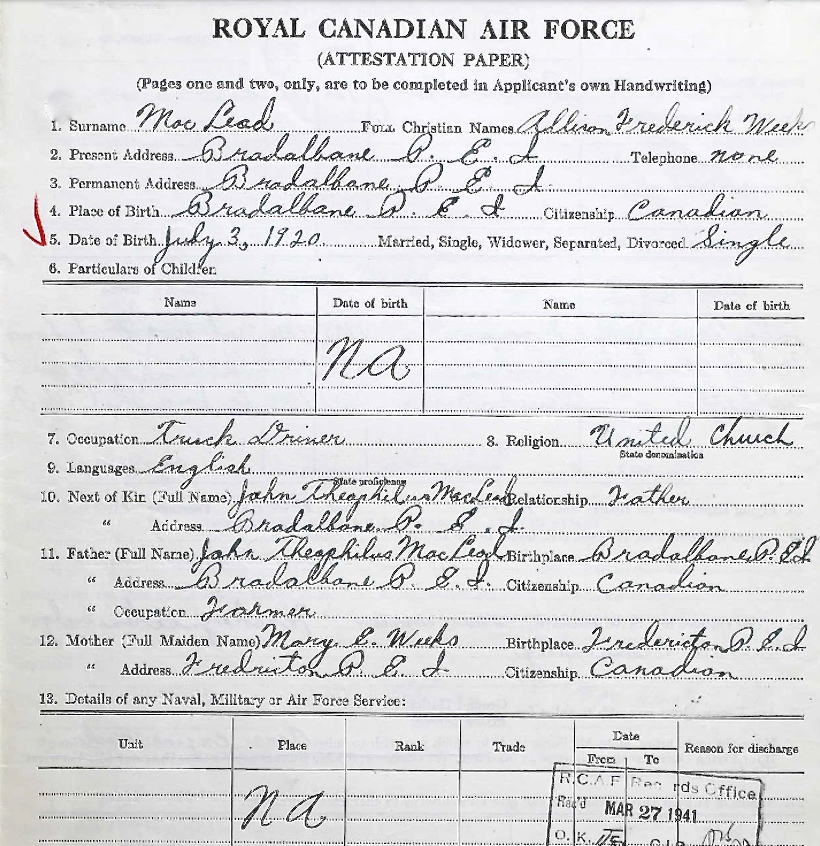 ROYAL CANADIAN AIR FORCE
(ATTESTATION PAPER)
(Pages one and two, only, are to be completed in Applicant's own Handwriting)
1. Surname Mac Leod Full Christian Names Allison Frederick Weeks
2. Present Address Bradalbane P. E. I Telephone none
3. Permanent Address Bradalbane P E I.
4. Place of Birth Bradalbane P. E I Citizenship Canadian
5. Date of Birth July 3, 1920 Married, Single, Widower, Separated, Divorced Single
6. Particulars of Children
Name Date of birth Name Date of birth
NA
7. Occupation Truck Driver 8. Religion United Church
State denomination
9. Languages English
State proficiency
10. Next of Kin (Full Name) John Theophilus MacLeod Relationship Father
" Address Bradalbane P. E. I.
11. Father (Full Name) John Theophilus Mac Leod Birthplace Bradalbane P. E I
" Address Bradalbane P E I. Citizenship Canadian
" Occupation Farmer
12. Mother (Full Maiden Name) Mary E. Weeks Birthplace Fredericton P. E I
" Address Fredricton P E I. Citizenship Canadian
13. Details of any Naval, Military or Air Force Service:
Unit Place Rank Trade Date Reason for discharge
From To
NA
R.C.A.F. Rec rds Office
Rec'd MAR 27 1941
O. K.